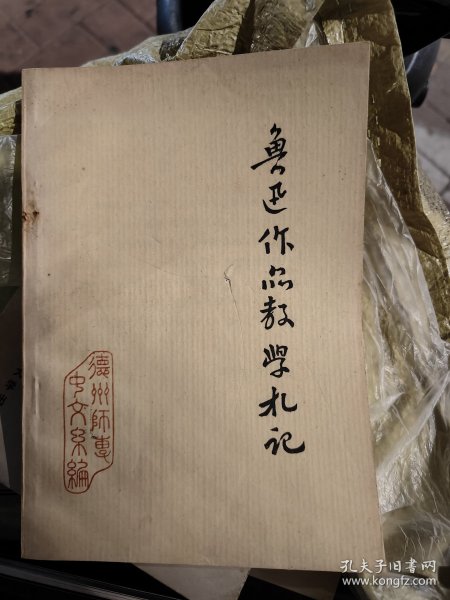 鲁迅作品教学札记
德州师专
中文系编
孔夫子旧书网
www.kongfz.com